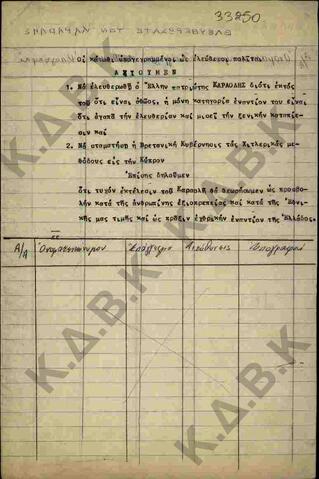 33250
Οἱ κάτωθι ὑπογεγραμμένοι ὡς ἐλεύθεροι πολῖται
ΑΞΙΟΥΜΕΝ
1. Νά ἐλευθερωθῇ ὁ Ἕλλην πατριώτης ΚΑΡΑΟΛΗΣ διότι ἐκτός
τοῦ ὅτι εἶναι ἀθῶος, ἡ μόνη κατηγορία ἐναντίον του εἶναι
ὅτι ἀγαπᾶ τήν ἐλευθερίαν καί μισεῖ τήν ξενικήν καταπίε-
σιν καί
2. Νά σταματήσῃ ἡ Βρετανική Κυβέρνησις τάς Χιτλερικάς με-
θόδους εἰς τήν Κύπρον
Ἐπίσης δηλοῦμεν
ὅτι τυχόν ἐκτέλεσιν τοῦ Καραολῆ θά θεωρήσωμεν ὡς προσβο-
λήν κατά τῆς ἀνθρωπίνης ἀξιοπρεπείας καί κατά τῆς Ἐθνι-
κῆς μας τιμῆς καί ὡς πρᾶξιν ἐχθρικήν ἐναντίον τῆς Ἑλλάδος.
Α/Α Ὀνοματεπώνυμον Ἐπάγγελμα Διεύθυνσις Ὑπογραφή
Κ.Δ.Β.Κ
Κ.Δ.Β.Κ
Κ.Δ.Β.Κ